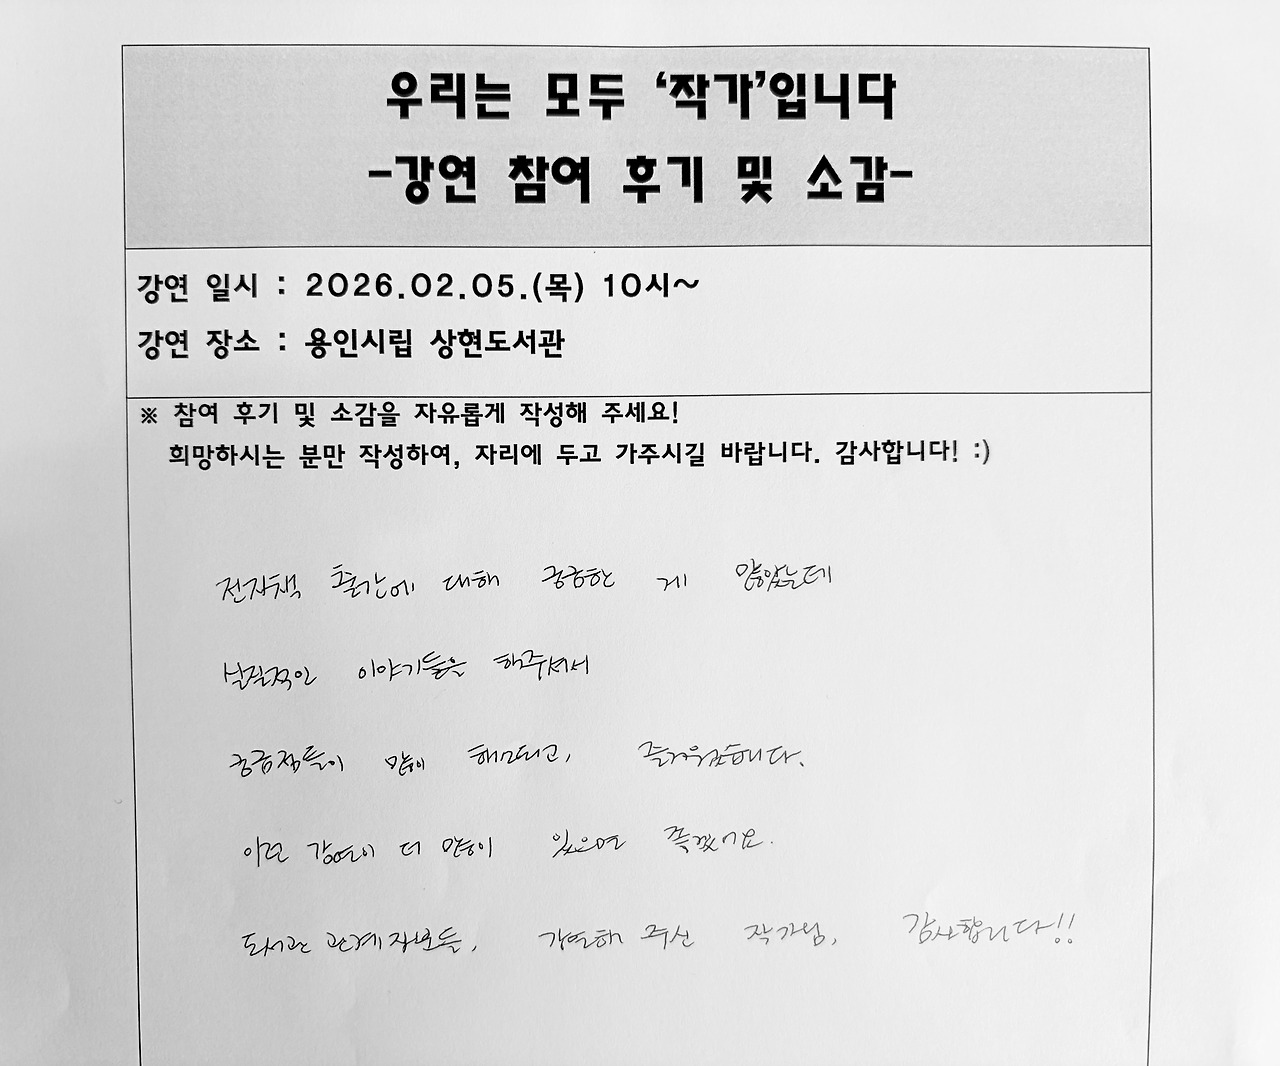 우리는 모두 ‘작가’입니다
-강연 참여 후기 및 소감-
강연 일시 : 2026.02.05.(목) 10시~
강연 장소 : 용인시립 상현도서관
※ 참여 후기 및 소감을 자유롭게 작성해 주세요!
희망하시는 분만 작성하여, 자리에 두고 가주시길 바랍니다. 감사합니다! :)
전자책 출간에 대해 궁금한 게 많았는데
실질적인 이야기들을 해주셔서
궁금점들이 많이 해소되고, 즐거웠습니다.
이런 강연이 더 많이 있으면 좋겠어요.
도서관 관계자분들, 강연해 주신 작가님, 감사합니다!!